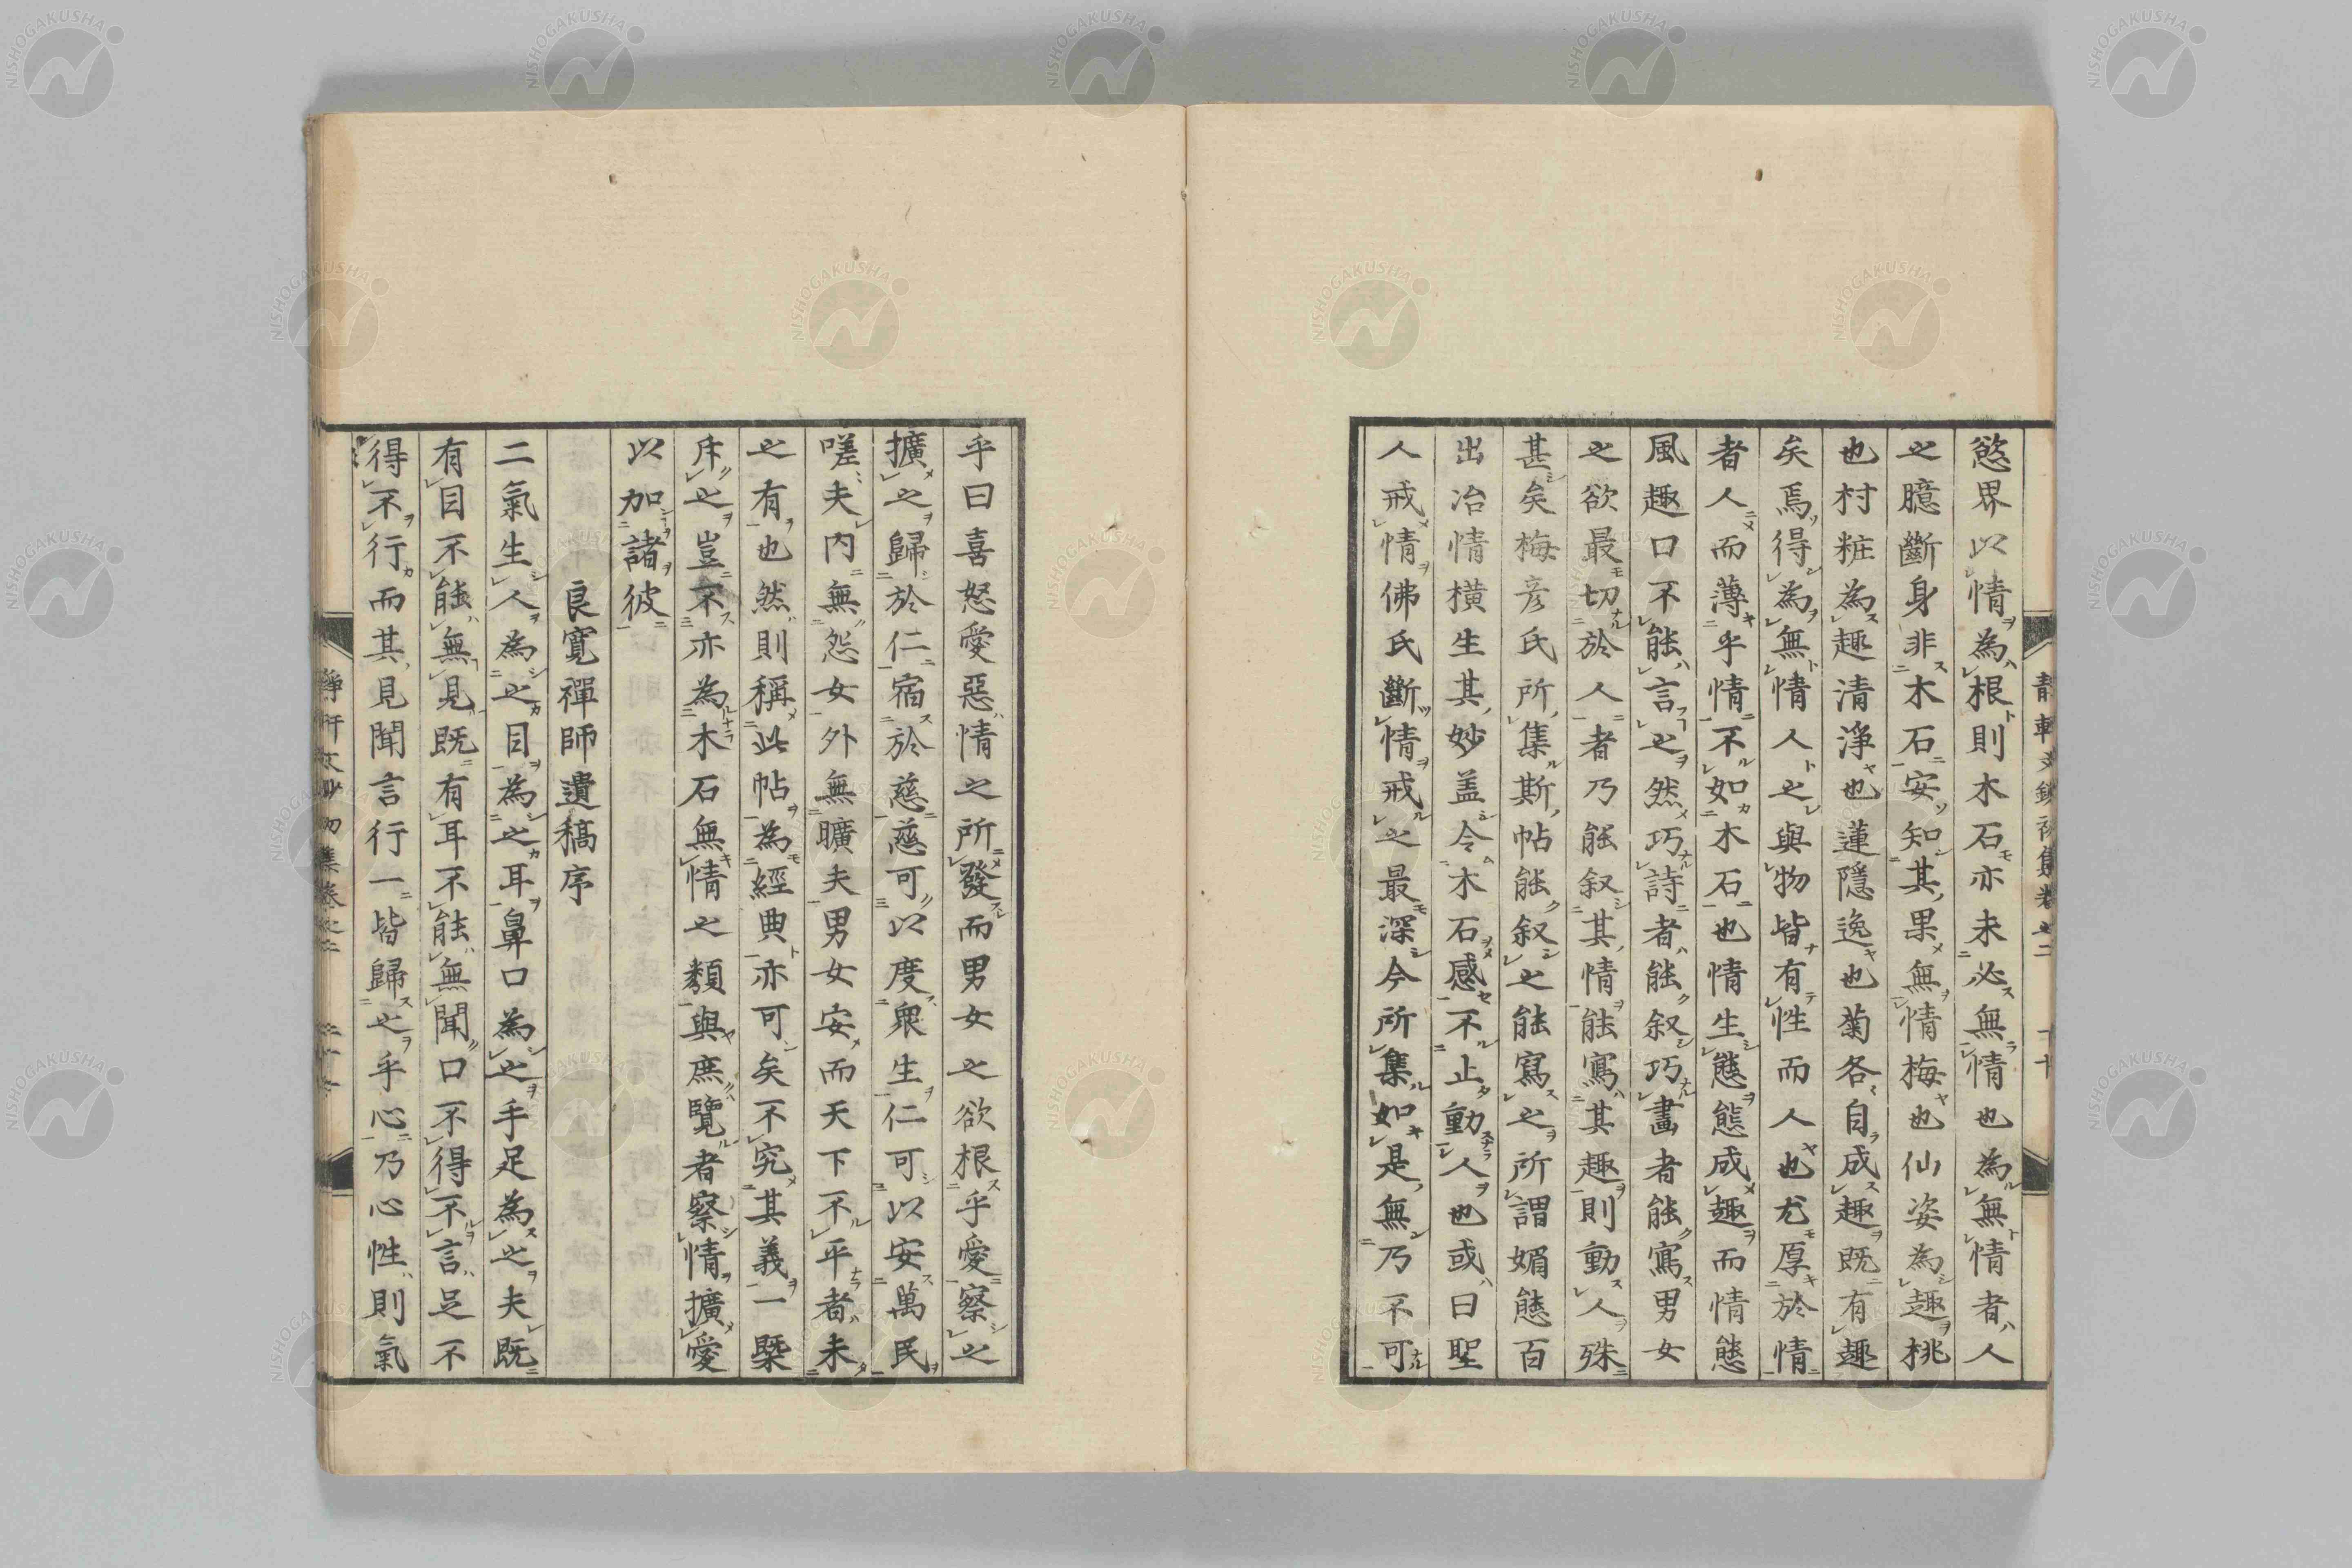 慾界以情為根則木石亦未必無情也為無情者人
之臆斷身非木石安知其果無情梅也仙姿為趣桃
也村粧為趣清淨也蓮隱逸也菊各自成趣既有趣
矣焉得為無情人之與物皆有性而人也尤厚於情
者人而薄乎情不如木石也情生態態成趣而情態
風趣口不能言之然巧詩者能叙巧畫者能寫男女
之欲最切於人者乃能叙其情能寫其趣則動人殊
甚矣梅彦氏所集斯帖能叙之能寫之所謂媚態百
出冶情橫生其妙盖令木石感不止動人也或曰聖
人戒情佛氏斷情戒之最深今所集如是無乃不可
乎曰喜怒愛惡情之所發而男女之欲根乎愛察之
擴之歸於仁宿於慈慈可以度衆生仁可以安萬民
嗟夫內無怨女外無曠夫男女安而天下不平者未
之有也然則稱此帖為經典亦可矣不究其義一槩
斥之豈不亦為木石無情之類與庶覽者察情擴愛
以加諸彼
良寬禪師遺稿序
二氣生人為之目為之耳鼻口為之手足為之夫既
有目不能無見既有耳不能無聞口不得不言足不
得不行而其見聞言行一皆歸之乎心乃心性則氣
靜軒文鈔初集卷之二